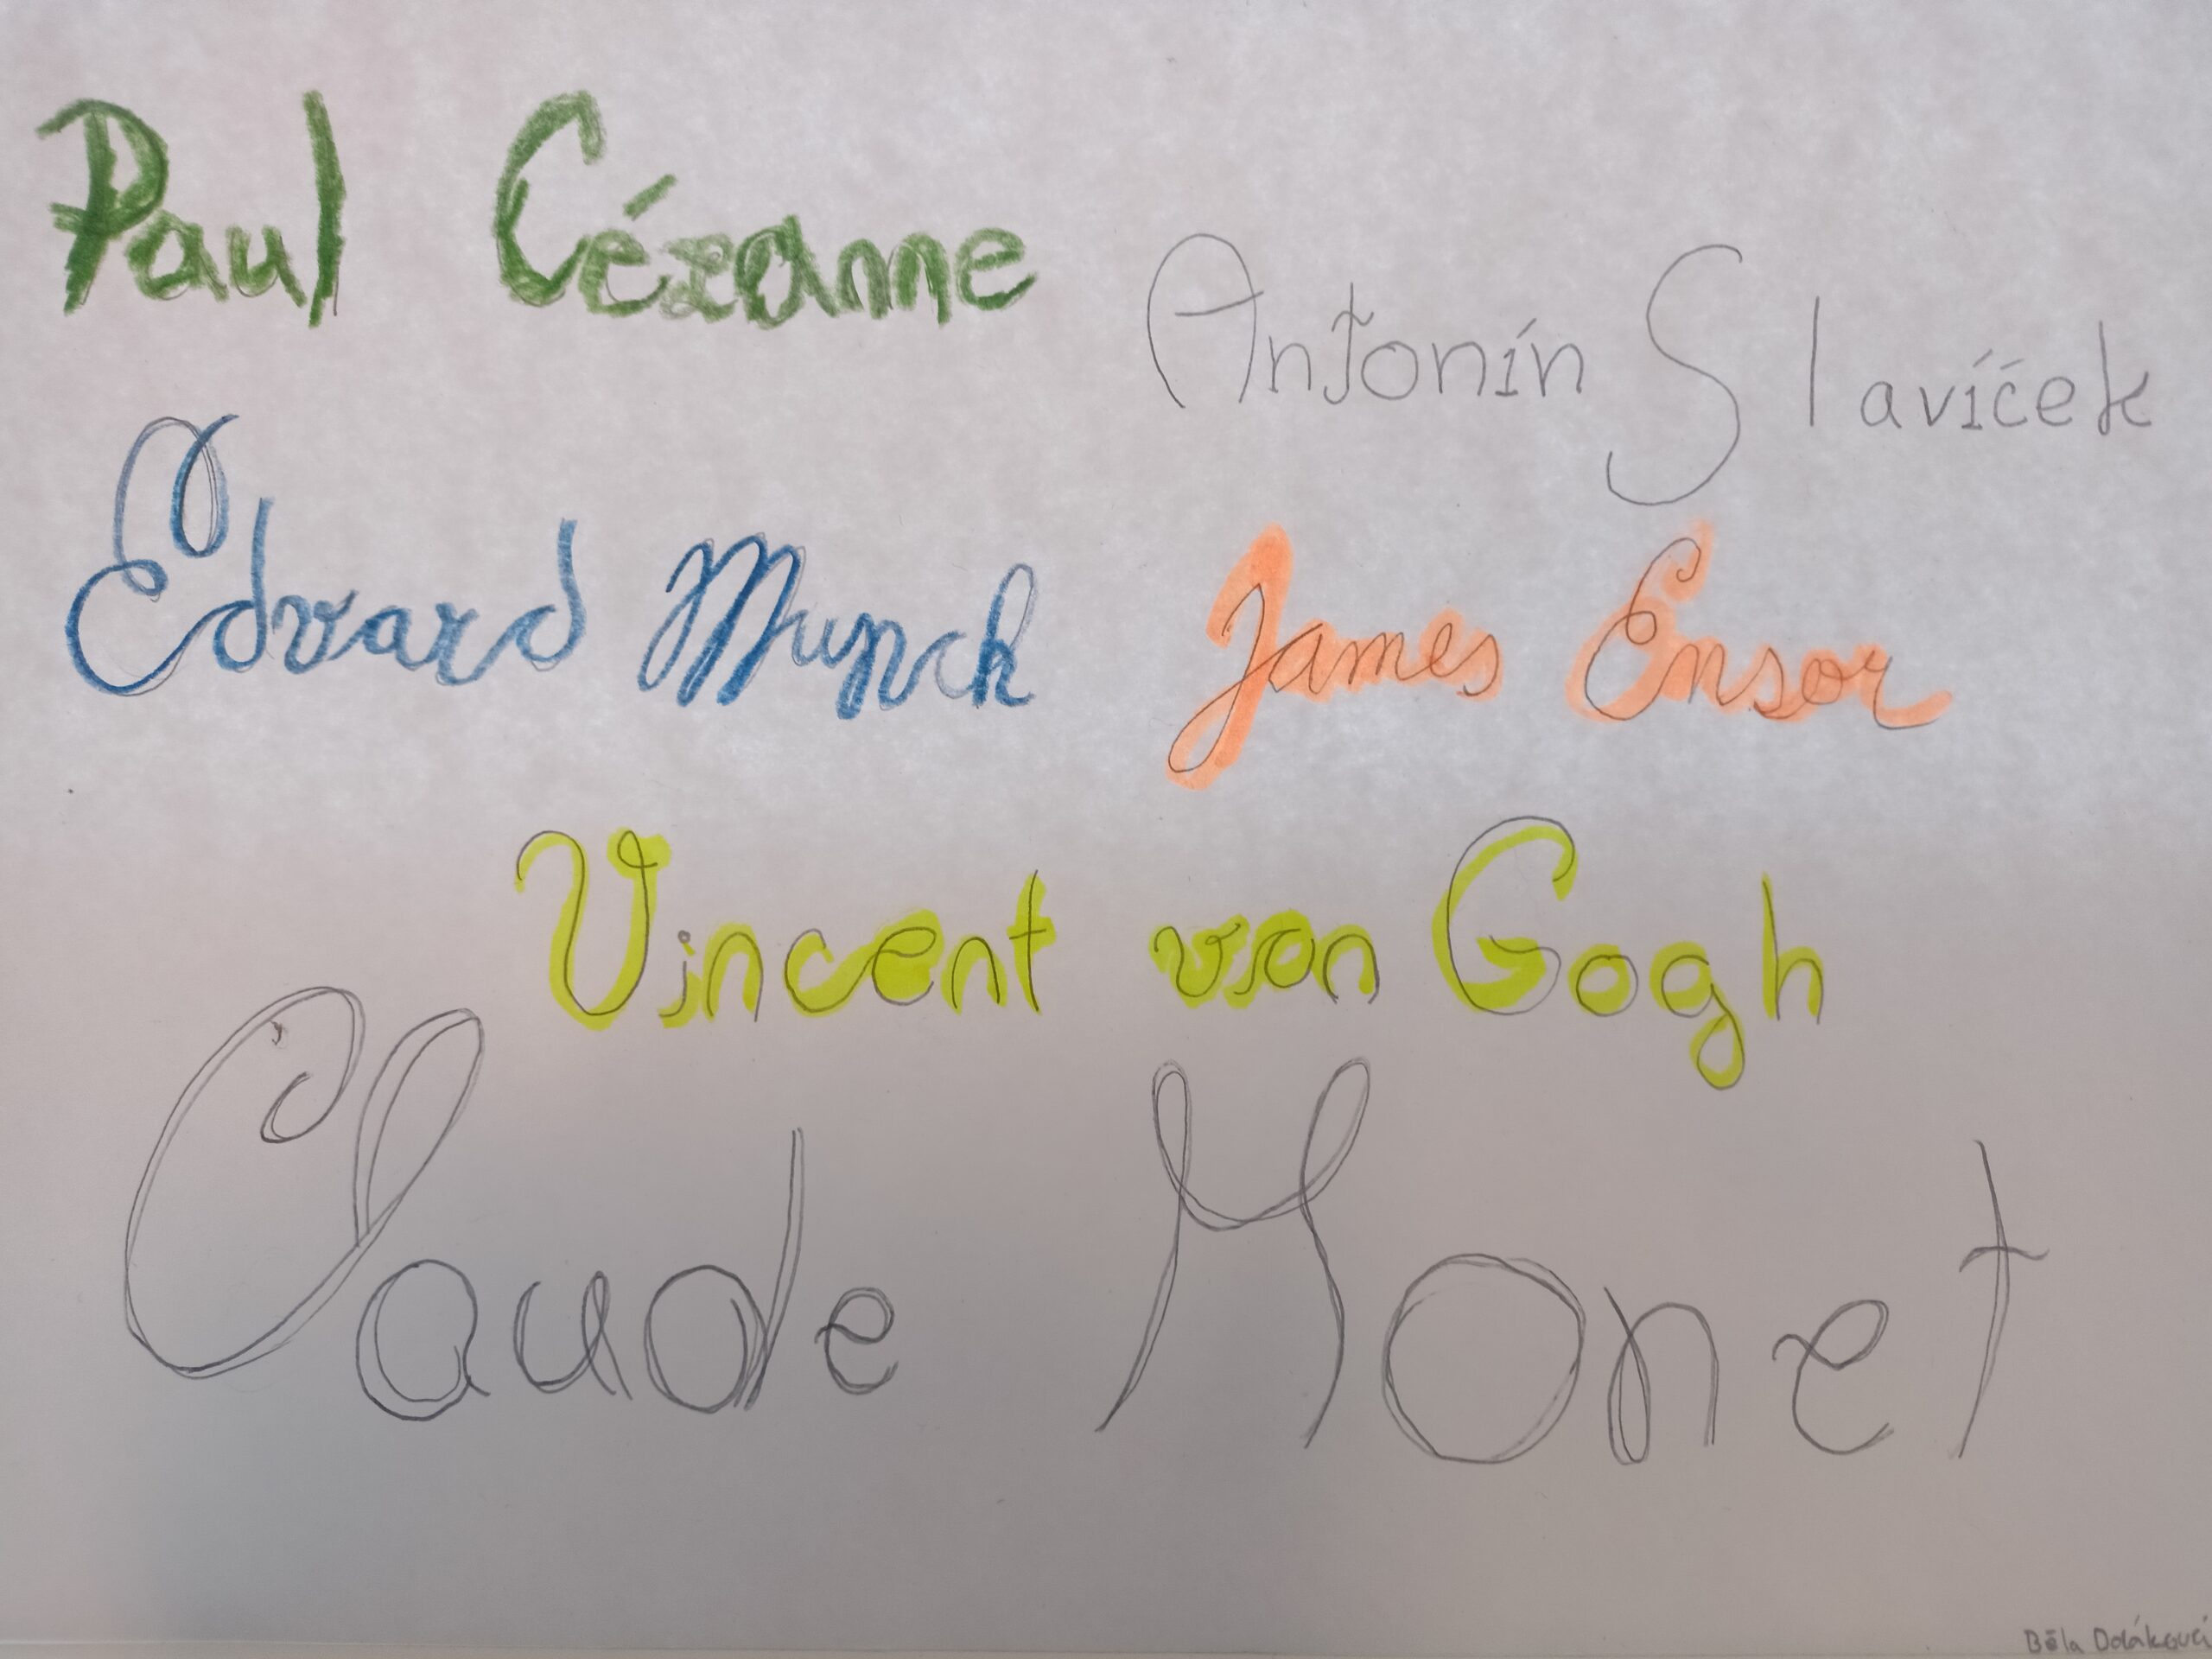 Paul Cézanne
Antonín Slavíček
Edvard Munch
James Ensor
Vincent von Gogh
Claude Monet
Běla